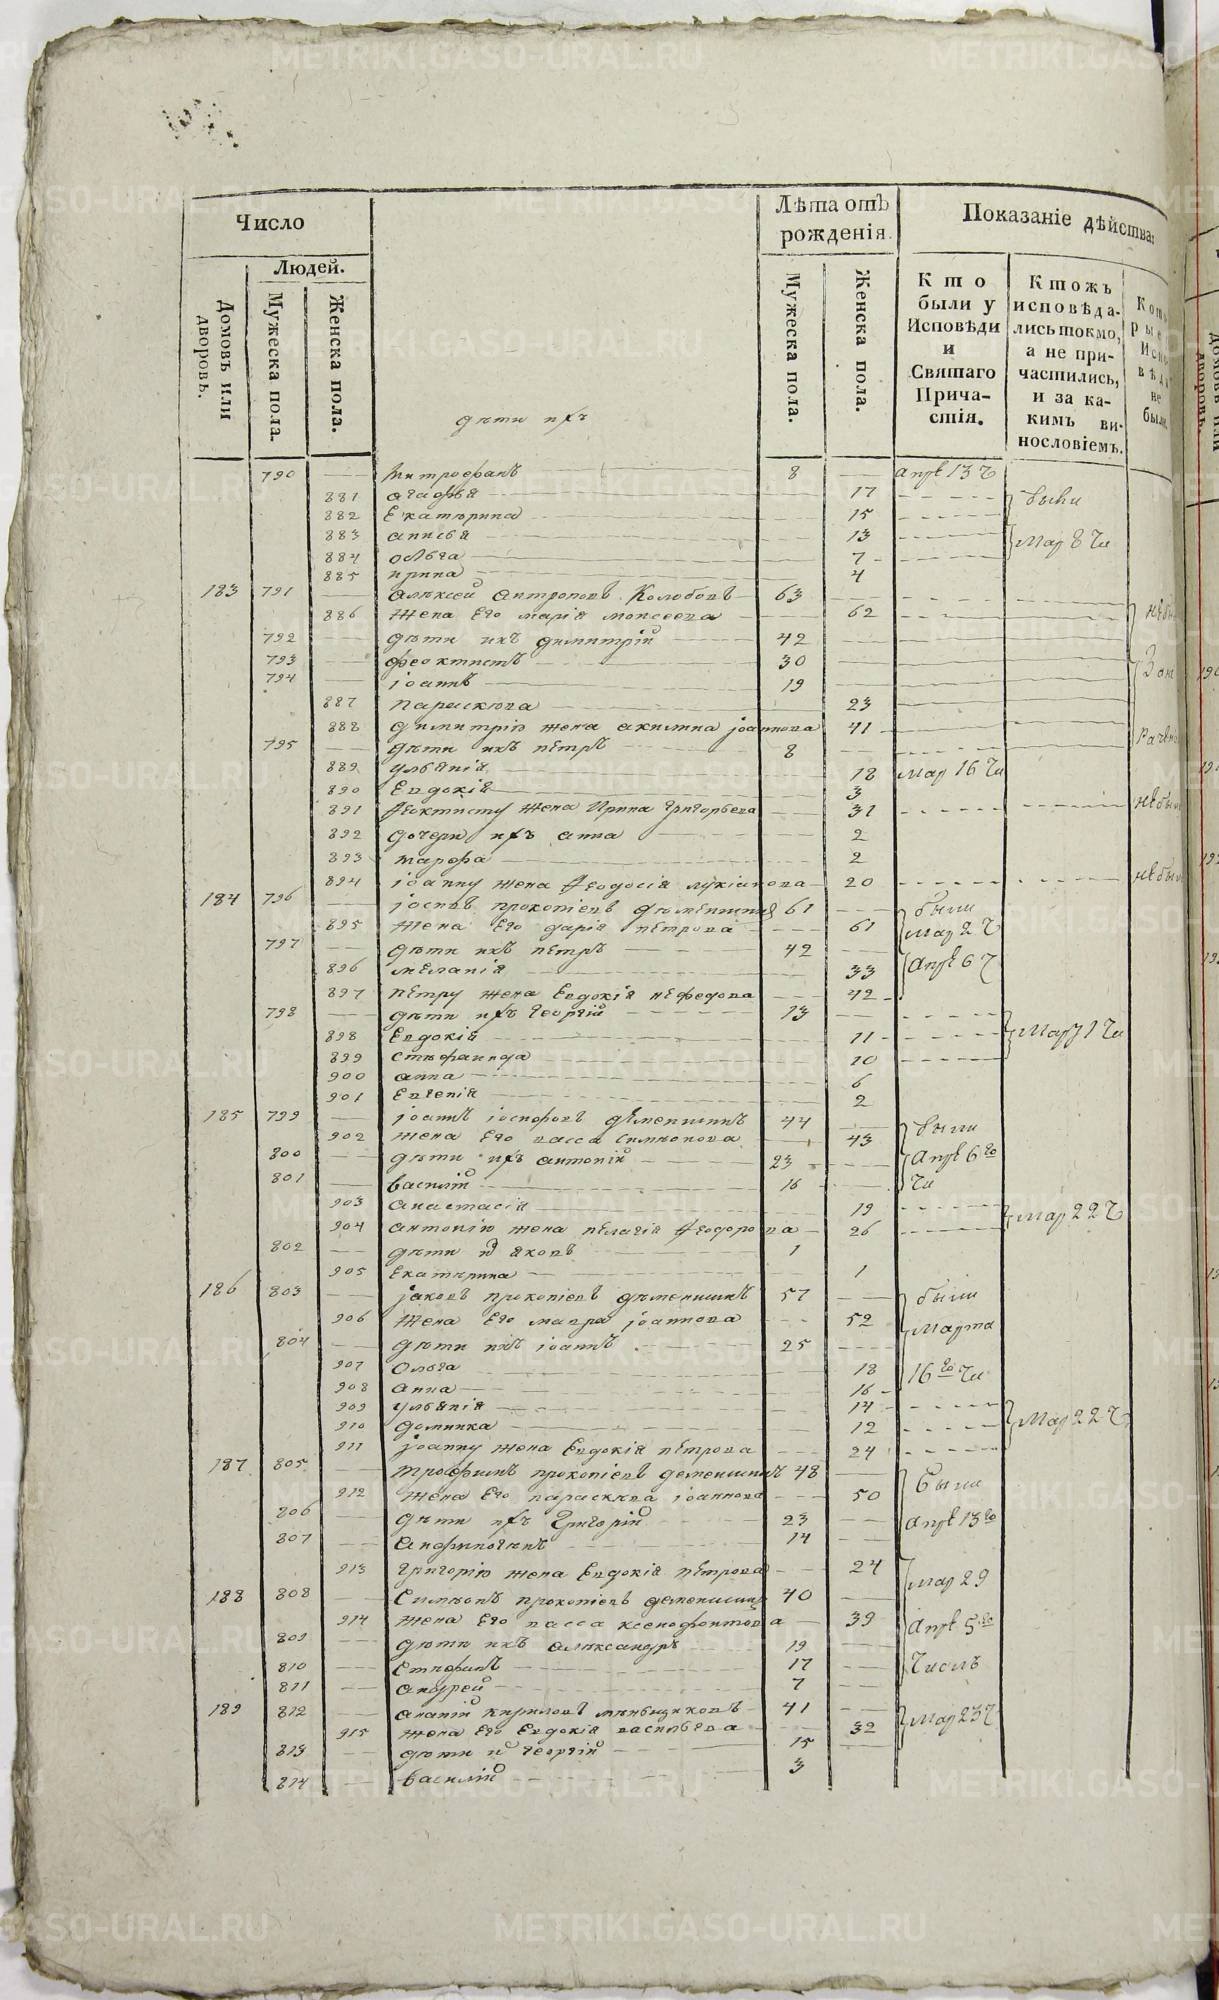 Число
Лѣта отъ рожденія.
Показаніе дѣйства:
Людей.
Домовъ или дворовъ.
Мужеска пола.
Женска пола.
Мужеска пола.
Женска пола.
Кто были у Исповѣди и Святаго Причастія.
Ктожъ исповѣдались токмо, а не причастились, и за какимъ винословіемъ.
дѣти ихъ
790 — митрофанъ 8 — апрѣ 13 ч
881 агафья 17 были
882 Екатерина 15
883 анисья 13 Мар 8 Чи
884 ольга 7
885 ирина 4
183 791 — алексѣй антроповъ Колобовъ 63
886 Жена Его марія моисеева 62
792 — дѣти ихъ димитрій 42
793 — феоктистъ 30
794 — іоаннъ 19
887 параскева 23
888 димитрію жена акилина іоаннова 41
795 — дѣти ихъ петръ 8
889 ульянія 18 мар 16 Чи
890 Евдокія 3
891 Феоктисту жена Ирина григорьева 31
892 дочери ихъ анна 2
893 марфа 2
894 іоанну жена Феодосія лукіанова 20
184 796 — іосифъ прокопіевъ деменшинъ 61 — были
895 жена Его дарія петрова 61 Мар 2 Ч
797 — дѣти ихъ петръ 42
896 меланія 33 Апрѣ 6 Ч
897 петру жена Евдокія нефедова 42
798 — дѣти ихъ георгій 13
898 Евдокія 11 Мар 1 Чи
899 стефанида 10
900 анна 6
901 Евгенія 2
185 799 — іоаннъ іосифовъ деменшинъ 44
902 жена Его васса симеонова 43 были
800 — дѣти ихъ антоній 23 Апрѣ 6 го
801 — василій 16 Чи
903 анастасія 19
904 антонію жена пелагія Феодорова 26 Мар 22 Ч
802 — дѣти их яковъ 1
905 Екатерина 1
186 803 — іаковъ прокопіевъ деменшинъ 57 — были
906 жена Его мавра іоаннова 52 Марта
804 — дѣти ихъ іоаннъ 25
907 Ольга 18 16 го Чи
908 анна 16
909 ульянія 14
910 домника 12 Мар 22 Ч
911 іоанну жена Евдокія петрова 24
187 805 — трофимъ прокопіевъ деменшинъ 48
912 жена Его параскева іоаннова 50 Были
806 — дѣти ихъ Григорій 23 — апрѣ 13 го
807 — 14
913 григорію жена Евдокія петрова 24 Мар 29
188 808 — Симеонъ прокопіевъ деменшинъ 40
914 жена Его васса ксенофонтова 39 Апрѣ 5 го
809 — дѣти ихъ александръ 19
810 — Стефанъ 17 Числъ
811 — андрей 7
189 812 — ананій кириловъ меньщиковъ 41
915 жена Его Евдокія васильева 32 Мар 23 Ч
813 — дѣти их георгій 15
814 — василій 3